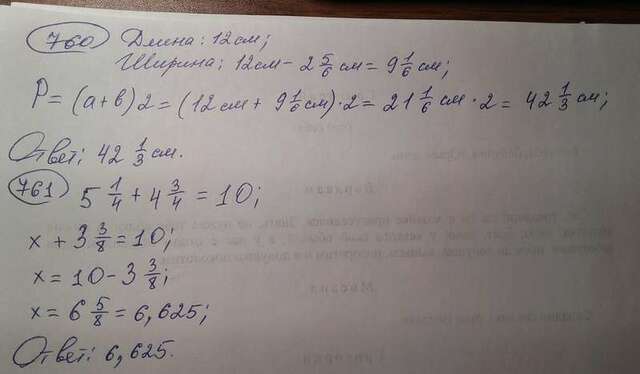 760 Длина: 12 см;
Ширина: 12 см - 2 5/6 см = 9 1/6 см;
P = (a + b) 2 = (12 см + 9 1/6 см) · 2 = 21 1/6 см · 2 = 42 1/3 см;
Ответ: 42 1/3 см.
761 5 1/4 + 4 3/4 = 10;
x + 3 3/8 = 10;
x = 10 - 3 3/8;
x = 6 5/8 = 6,625;
Ответ: 6,625.